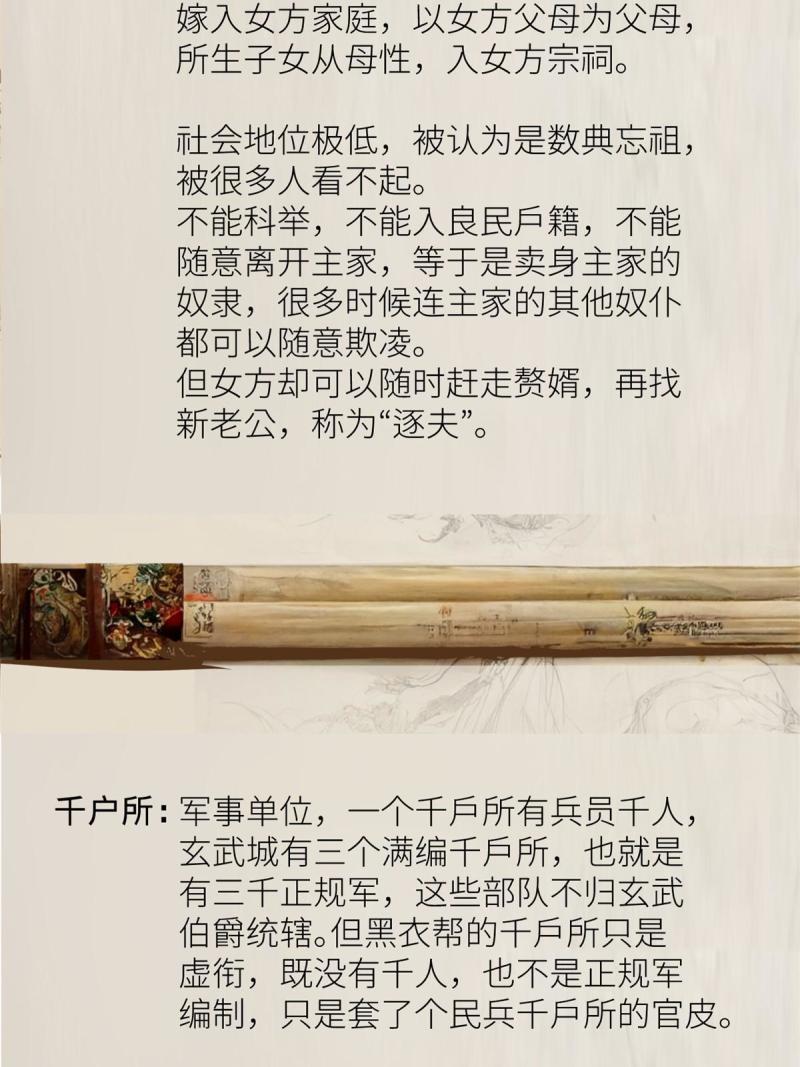 嫁入女方家庭，以女方父母为父母，
所生子女从母性，入女方宗祠。
社会地位极低，被认为是数典忘祖，
被很多人看不起。
不能科举，不能入良民戶籍，不能
随意离开主家，等于是卖身主家的
奴隶，很多时候连主家的其他奴仆
都可以随意欺凌。
但女方却可以随时赶走赘婿，再找
新老公，称为“逐夫”。
千户所：军事单位，一个千戶所有兵员千人，
玄武城有三个满编千戶所，也就是
有三千正规军，这些部队不归玄武
伯爵统辖。但黑衣帮的千戶所只是
虚衔，既没有千人，也不是正规军
编制，只是套了个民兵千戶所的官皮。